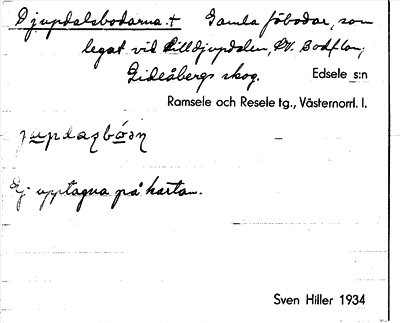 Djupdalsbodarna.† Gamla fäbodar, som
legat vid Lilldjupdalen, SV. Bodflon,
Gideåbergs skog. Edsele s:n
Ramsele och Resele tg., Västernorrl. l.
Ej upptagna på kartan.
Sven Hiller 1934